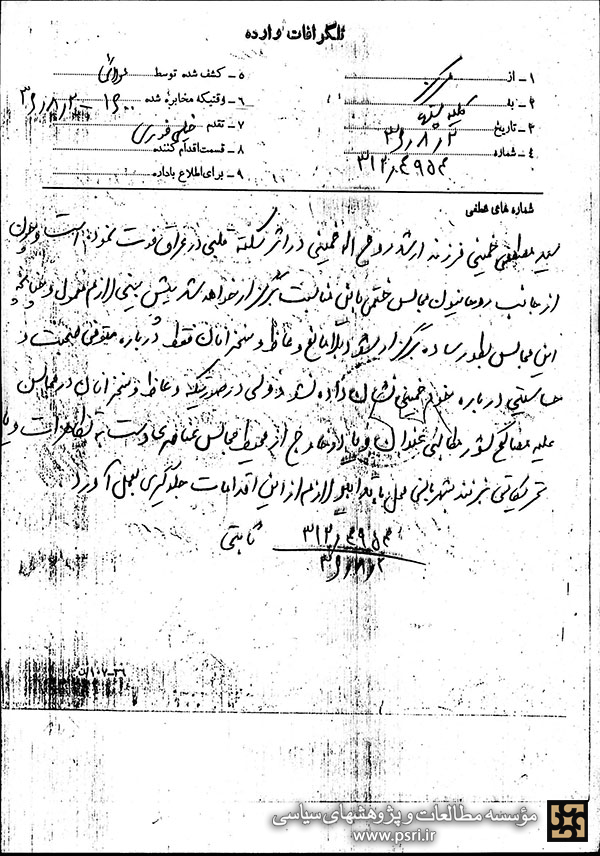 تلگرافات وارده
۱ـ از مرکز
۲ـ به کلیه
۳ـ تاریخ ۳۶/۸/۲
۴ـ شماره ۳۱۲/۴۹۵۴
۵ـ کشف شده توسط
۶ـ وقتیکه مخابره شده ۱۶۰۰ - ۳۶/۸/۲
۷ـ تقدم خیلی فوری
۸ـ قسمت اقدام کننده
۹ـ برای اطلاع باداره
شماره های عطفی
سید مصطفی خمینی فرزند ارشد روح اله خمینی در اثر سکته قلبی در عراق فوت نموده است و چون
از جانب روحانیون مجالس ختمی باین مناسبت برگزار خواهد شد پیش بینی لازم معمول و چنانچه
این مجالس بطور ساده برگزار میشود بلامانع و وعاظ و سخنرانان فقط درباره متوفی صحبت و
حساسیتی درباره خود خمینی نشان داده نشود ولی در صورتیکه وعاظ و سخنرانان در مجالس
علیه مصالح کشور مطالبی عنوان و یا در خارج از محیط مجالس عناصری دست به تظاهرات و یا
تحریکاتی بزنند شهربانی محل باید لازم از این اقدامات جلوگیری بعمل آورد
۳۱۲/۴۹۵۴ ثابتی
۳۶/۸/۲
مؤسسه مطالعات و پژوهشهای سیاسی
www.psri.ir